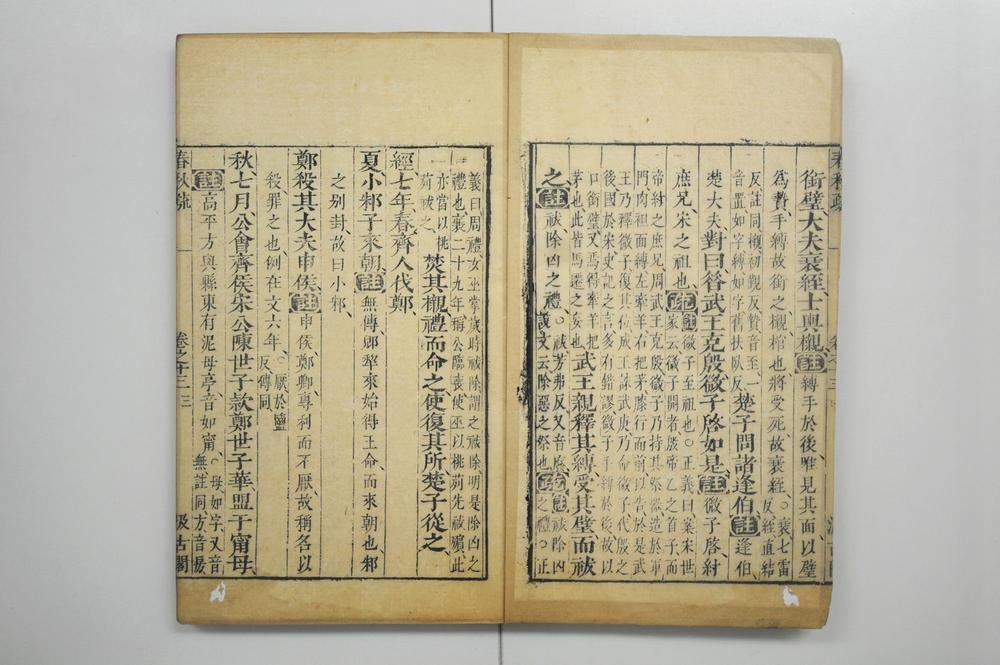 春秋疏
卷之十三
汲古閣
銜璧大夫衰絰士輿櫬註縛手於後唯見其面以璧
爲贄手縛故銜之櫬棺也將受死故衰絰○衰七雷
反絰直結
反註同櫬初覲反贄音至一
音置如字縛如字舊扶臥反楚子問諸逢伯註逢伯
楚大夫對曰昔武王克殷微子啓如是註微子啓紂
庶兄宋之祖也疏註微子至祖也○正義曰案宋世
家云微子開者殷帝乙之首子而
帝紂之庶兄周武王克殷微子乃持其祭器造於軍
門肉袒面縛左牽羊右把茅膝行而前以告於是武
王乃釋微子復其位成王誅武庚乃命微子代殷之
後國於宋史記之言多有錯謬微子手縛於後故以
口銜璧又焉得牽羊把
茅也此皆馬遷之妄也武王親釋其縛受其璧而祓
之註祓除凶之禮○祓芳弗反又音廢
說文云除惡之祭也疏註祓除凶
之禮○正
義曰周禮女巫掌歲時祓除謂之祓除明是除凶之
禮也襄二十九年稱公臨喪使巫以桃茢先祓殯此
亦當以桃
茢祓之焚其櫬禮而命之使復其所楚子從之
經七年春齊人伐鄭
夏小邾子來朝註無傳郳犂來始得王命而來朝也邾
之別封故曰小邾
鄭殺其大夫申侯註申侯鄭卿專利而不厭故稱名以
殺罪之也例在文六年○厭於鹽
反傳同
秋七月公會齊侯宋公陳世子款鄭世子華盟于甯母
註高平方輿縣東有泥母亭音如甯○母如字又音
無註同方音房
春秋疏
卷之十三
三
汲古閣